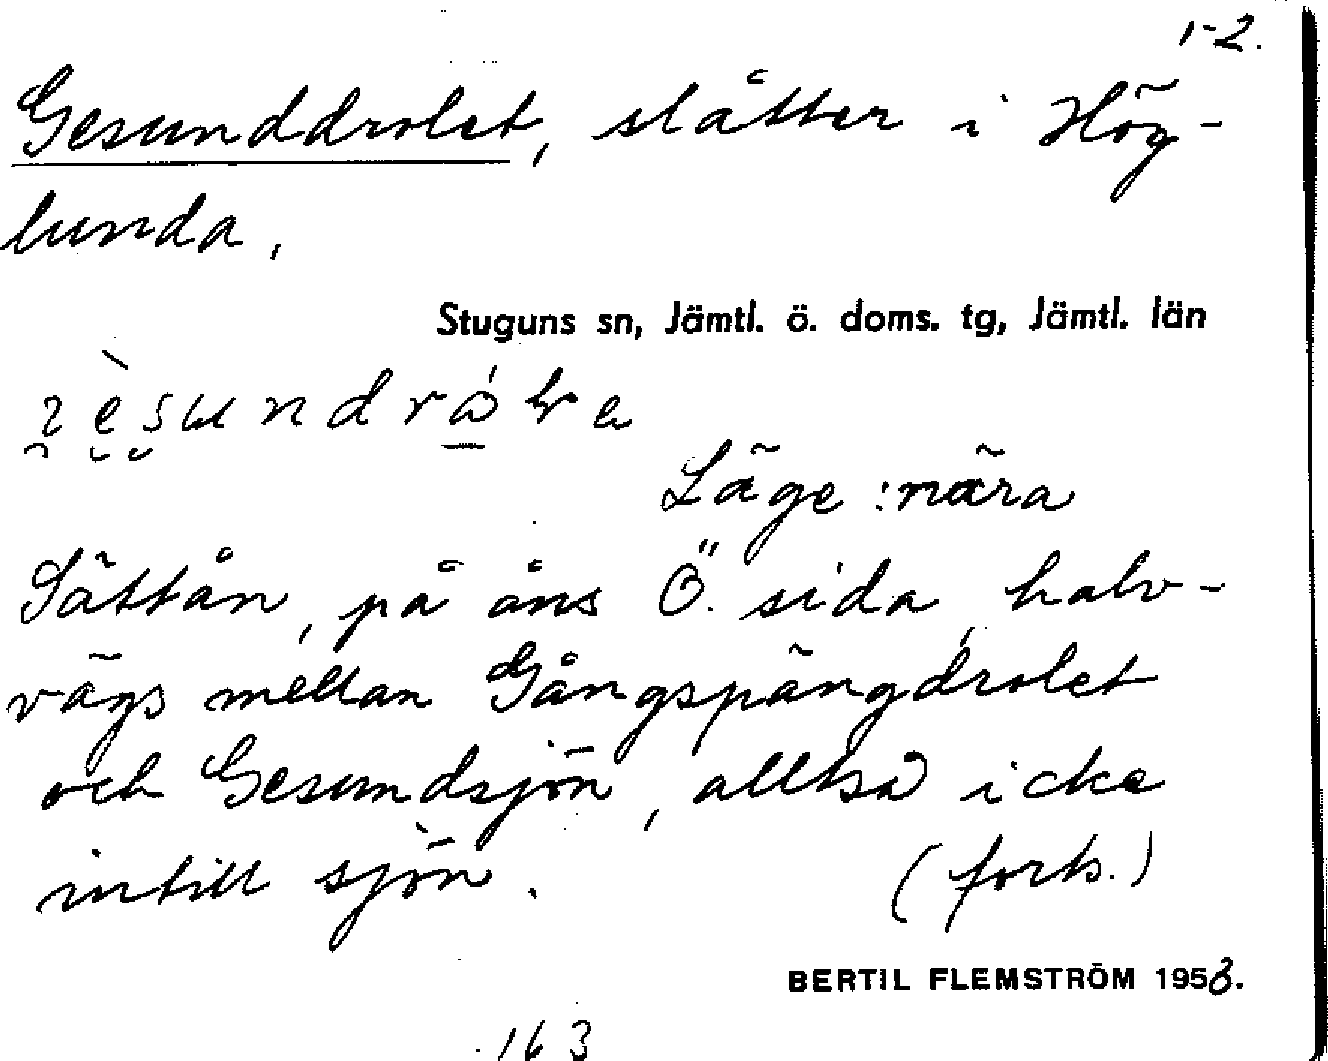 1-2.
Gesunddrolet, slåtter i Hög-
lunda.
Stuguns sn, Jämtl. ö. doms. tg, Jämtl. län
Läge: nära
Sättån, på åns Ö. sida, halv-
vägs mellan Gångspängdrolet
och Gesundsjön, alltså icke
intill sjön. (forts.)
BERTIL FLEMSTRÖM 1958.
163